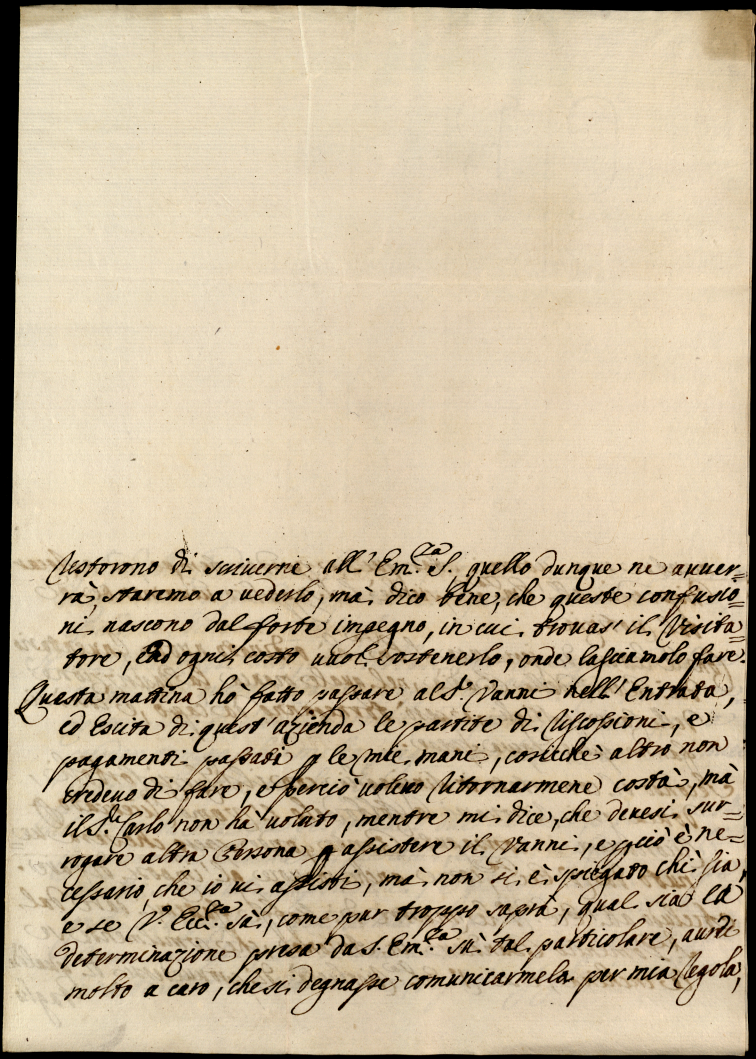 restorono di scriverne all' Em.za S. quello dunque ne auuer=
rà, staremo a vederlo, mà dico bene, che queste confusio=
ni nascono dal forte impegno, in cui trouas' il Visita=
tore, ad ogni costo uuol sostenerlo, onde lasciamolo fare.
Questa mattina hò fatto passare al S.r Vanni nell' Entrata,
ed Escita di quest' azienda le partite di Riscossioni, e
pagamenti passati p le mie mani, cosicchè altro non
credeuo di fare, e perciò uoleuo ritornarmene costà, mà
il S.r Carlo non hà uoluto, mentre mi dice, che deuesi sur=
rogare altra Persona p assistere il Vanni, e p ciò è ne=
cessario, che io ui assisti, mà non si è spiegato chi sia,
e se V. Ecc.za sà, come pur troppo saprà, qual sia la
determinazione presa da S. Em.za sù tal particolare, aurei
molto a caro, che si degnasse comunicarmela per mia regola,